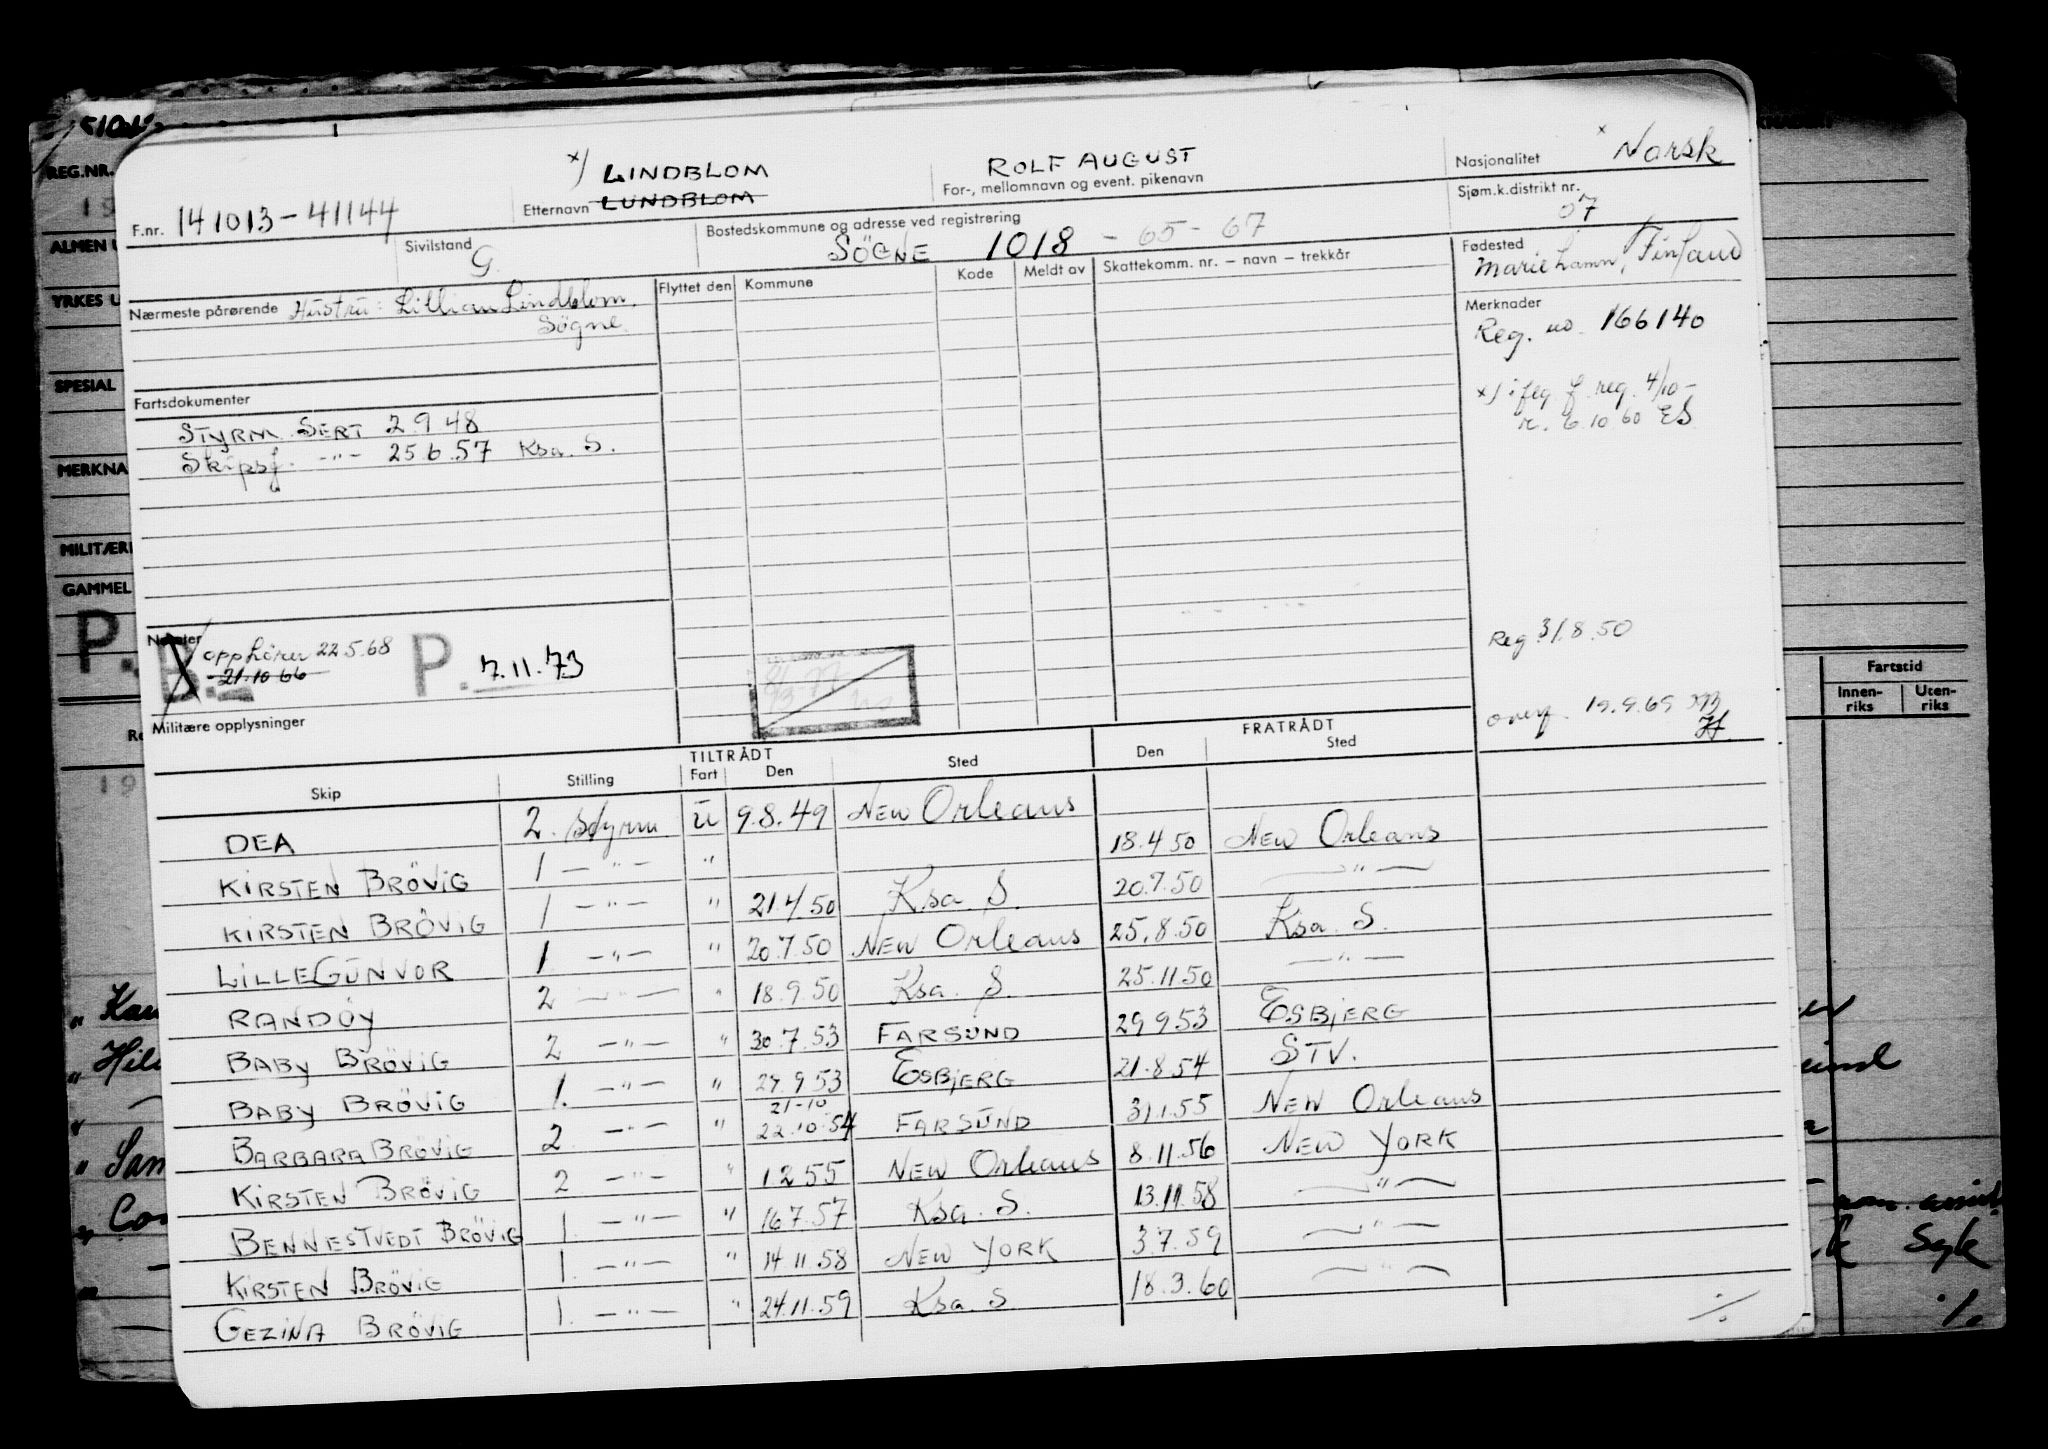 x) LINDBLOM ROLF AUGUST Nasjonalitet x Norsk
F.nr. 141013-41144 Etternavn LUNDBLOM For-, mellomnavn og event. pikenavn Sjøm.k.distrikt nr. 07
Sivilstand G. Bostedskommune og adresse ved registrering SÖGNE 1018 - 65 - 67 Fødested Mariehamn, Finland
Nærmeste pårørende Hustru: Lillian Lindblom, Flyttet den Kommune Kode Meldt av Skattekomm. nr. – navn – trekkår Merknader
Sögne Reg. no. 166140
Fartsdokumenter
x) i flg f. reg. 4/10-
STYRM. SERT 2.9.48 r. 6.10.60 ES
Skipsf. -"- 25.6.57 Ksa. S.
Notater opphörer 22.5.68 P. 7.11.73 Reg. 31.8.50
B. 21.10.66
Militære opplysninger overf. 19.9.69
TILTRÅDT FRATRÅDT
Skip Stilling Fart Den Sted Den Sted
DEA 2. styrm U 9.8.49 NEW Orleans
KIRSTEN BRÖVIG 1 -"- " 18.4.50 NEW Orleans
KIRSTEN BRÖVIG 1 -"- " 21.4.50 Ksa. S. 20.7.50 -"-
LILLEGUNVOR 1 -"- " 20.7.50 NEW Orleans 25.8.50 Ksa. S.
RANDÖY 2 -"- " 18.9.50 Ksa. S. 25.11.50 -"-
BABY BRÖVIG 2 -"- " 30.7.53 FARSUND 29.9.53 ESBJERG
BABY BRÖVIG 1. -"- " 29.9.53 ESBJERG 21.8.54 STV.
BARBARA BRÖVIG 2 -"- " 21-10 22.10.54 FARSUND 31.1.55 NEW Orleans
KIRSTEN BRÖVIG 2 -"- " 1.2.55 NEW Orleans 8.11.56 NEW YORK
BENNESTVEDT BRÖVIG 1. -"- " 16.7.57 Ksa. S. 13.11.58 -"-
KIRSTEN BRÖVIG 1. -"- " 14.11.58 NEW YORK 3.7.59 -"-
GEZINA BRÖVIG 1. -"- " 24.11.59 Ksa. S 18.3.60 -"-
./.
REG.NR.
ALMEN U
YRKES U
SPESIAL
MERKNA
MILITÆR
GAMMEL
P.
Fartstid
Innen-riks Uten-riks
Syk
./.